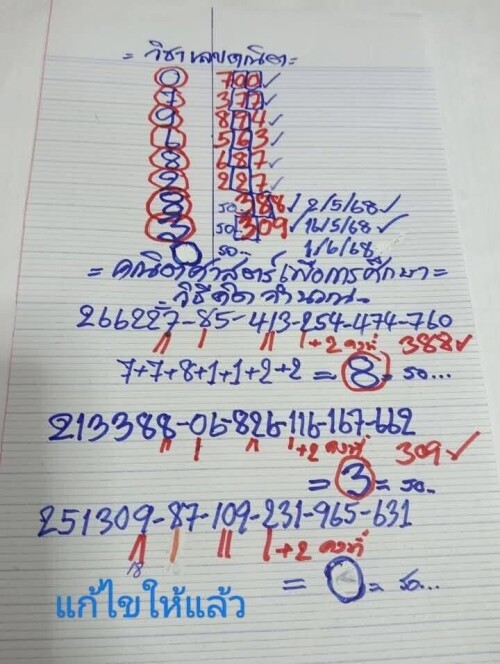 = วิชาเลขคณิต =
0 700 ✓
7 377 ✓
9 894 ✓
6 563 ✓
8 687 ✓
2 227 ✓
8 รอ 388 ✓ 2/5/68 ✓
3 รอ 309 ✓ 16/5/68 ✓
0 รอ 1/6/68
= คณิตศาสตร์เพื่อการศึกษา =
วิธีคิดคำนวณ
266227-85-413-254-474-760
+2 คงที่ 388 ✓
7+7+8+1+1+2+2 = 8 = รอ...
213388-06-826-116-167-662
+2 คงที่ 309 ✓
= 3 = รอ..
251309-87-109-231-965-631
+2 คงที่
18
= 0 = รอ...
แก้ไขให้แล้ว